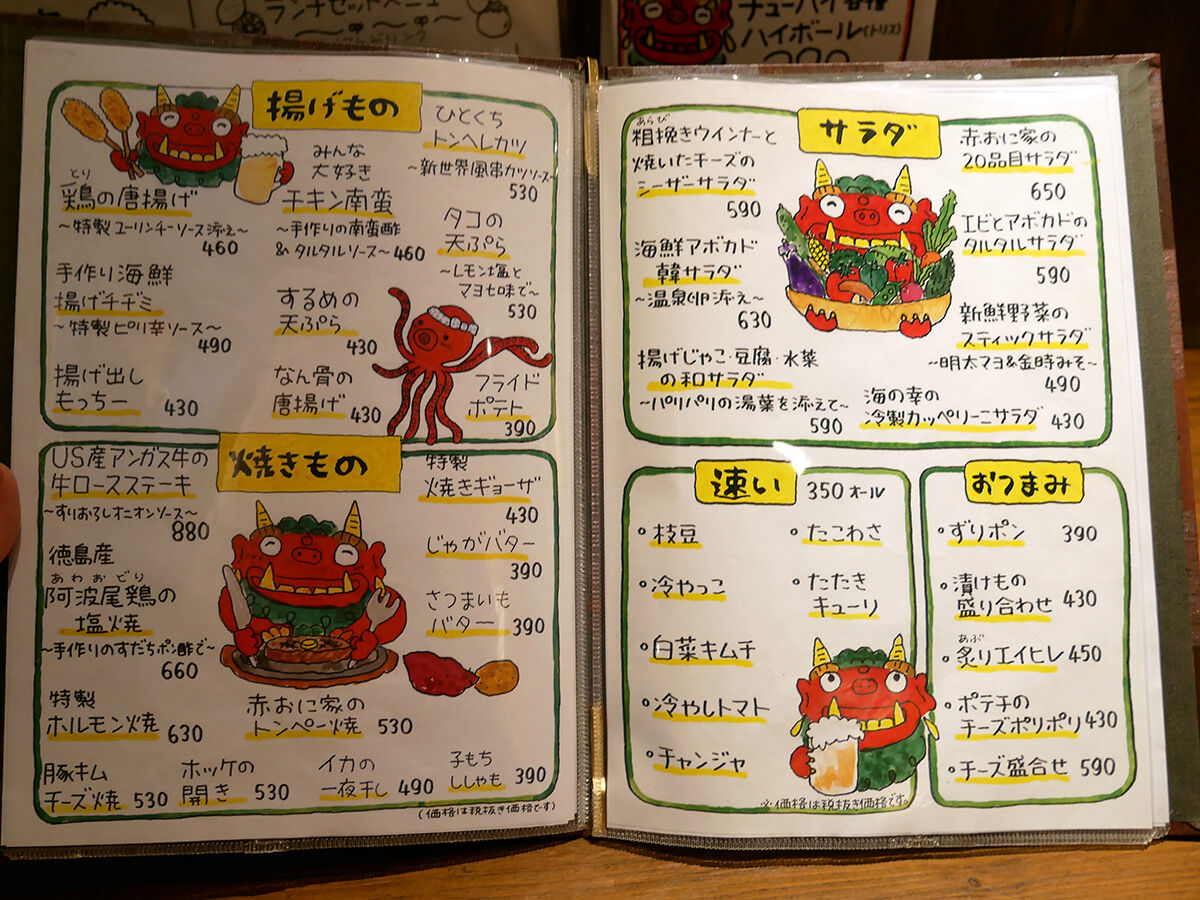 ランチセットメニュー
チューハイ各種
ハイボール(トリス)
揚げもの
とり
鶏の唐揚げ
〜特製ユーリンチーソース添え〜
460
みんな
大好き
チキン南蛮
〜手作りの南蛮酢
&タルタルソース〜460
ひとくち
トンヘレカツ
〜新世界風串カツソース〜
530
手作り海鮮
揚げチヂミ
〜特製ピリ辛ソース〜
490
するめの
天ぷら
430
タコの
天ぷら
〜レモン塩と
マヨ七味で〜
530
揚げ出し
もっちー 430
なん骨の
唐揚げ 430
フライド
ポテト
390
焼きもの
US産アンガス牛の
牛ロースステーキ
〜すりおろしオニオンソース〜
880
徳島産
あわおどり
阿波尾鶏の
塩焼
〜手作りのすだちポン酢で〜
660
特製
焼きギョーザ
430
じゃがバター
390
さつまいも
バター 390
特製
ホルモン焼 630
赤おに家の
トンペー焼 530
豚キム
チーズ焼 530
ホッケの
開き 530
イカの
一夜干し 490
子もち
ししゃも 390
(価格は税抜き価格です)
サラダ
あらび
粗挽きウインナーと
焼いたチーズの
シーザーサラダ
590
赤おに家の
20品目サラダ
650
海鮮アボカド
韓サラダ
〜温泉卵添え〜
630
エビとアボカドの
タルタルサラダ
590
新鮮野菜の
スティックサラダ
〜明太マヨ&金時みそ〜
490
揚げじゃこ・豆腐・水菜
の和サラダ
〜パリパリの湯葉を添えて〜
590
海の幸の
冷製カッペリーニサラダ 430
速い 350オール
・枝豆
・冷やっこ
・白菜キムチ
・冷やしトマト
・チャンジャ
・たこわさ
・たたき
キューリ
※価格は税抜き価格です。
おつまみ
・ずりポン 390
・漬けもの
盛り合わせ 430
あぶ
・炙りエイヒレ 450
・ポテチの
チーズポリポリ 430
・チーズ盛合せ 590